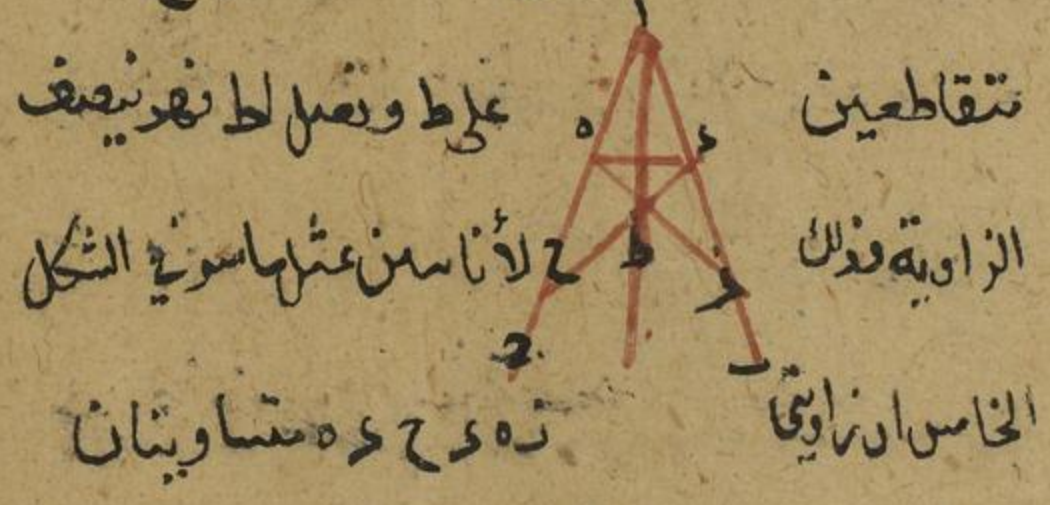 متقاطعين على ط ونصل اط فهو ينصف
الزاوية وذلك لأنا نبين بمثل ما بين في الشكل
الخامس ان زاويتى زه ء ح ء ه متساويتان
ا
ه ء
ح ط ز
ج ب